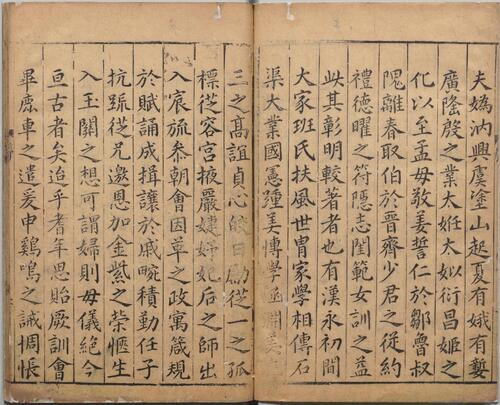 夫媯汭興虞塗山起夏有娀有㜪
廣隆殷之業太姙太姒衍昌姬之
化以至孟母敬姜誓仁於鄒魯叔
隗離春取伯於晉齊少君之從約
禮德曜之符隱志閨範女訓之益
此其彰明較著者也有漢永初間
大家班氏扶風世冑家學相傳石
渠大業國憲踵美博學淵美
三之高誼貞心皎日勵從一之孤
標從容宮掖嚴婕妤妃后之師出
入宸旒叅朝會因革之政寓箴規
於賦誦成揖讓於戚畹積勤任子
抗䟽從兄邀恩加金紫之榮愜生
入玉關之想可謂婦則母儀絕今
亘古者矣迨乎耆年思貽厥訓會
畢鹿車之遣爰申鷄鳴之誡惆悵